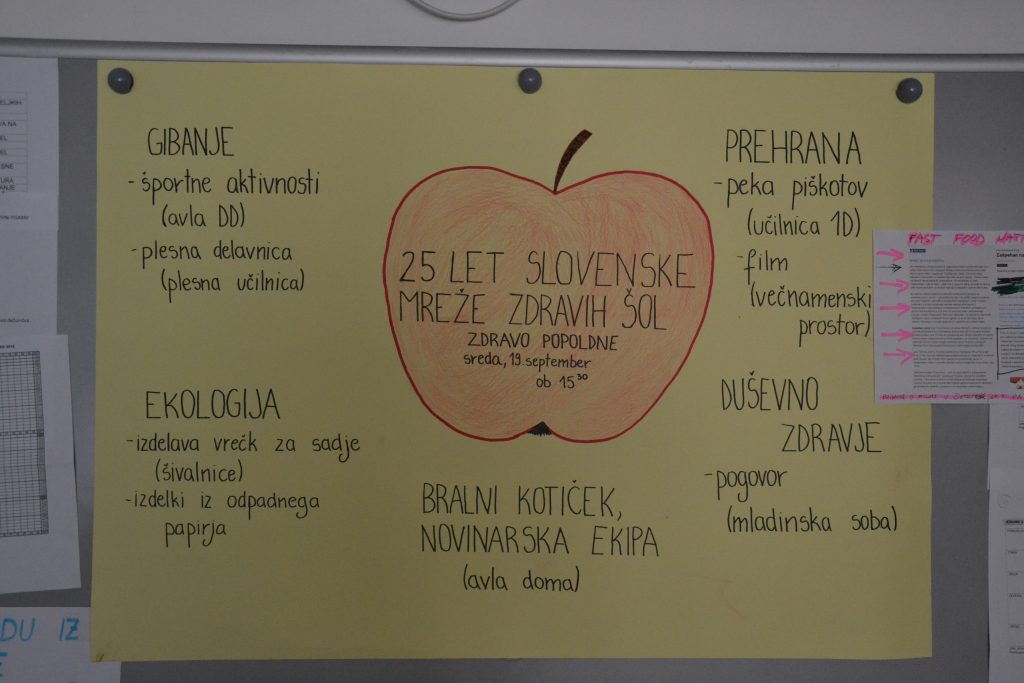 GIBANJE
- športne aktivnosti
(avla DD)
- plesna delavnica
(plesna učilnica)
25 LET SLOVENSKE
MREŽE ZDRAVIH ŠOL
ZDRAVO POPOLDNE
sreda, 19. september
ob 15³⁰
PREHRANA
- peka piškotov
(učilnica 1D)
- film
(večnamenski
prostor)
EKOLOGIJA
- izdelava vrečk za sadje
(šivalnice)
- izdelki iz odpadnega
papirja
BRALNI KOTIČEK,
NOVINARSKA EKIPA
(avla doma)
DUŠEVNO
ZDRAVJE
- pogovor
(mladinska soba)
FAST FOOD
DU IZ